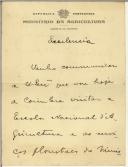 REPUBLICA PORTUGUESA
MINISTERIO DA AGRICULTURA
Excelencia
Venho communicar
a V. Ex.ª que vou hoje
a Coimbra visitar a
Escola Nacional d'A-
gricultura e os servi-
ços florestaes do